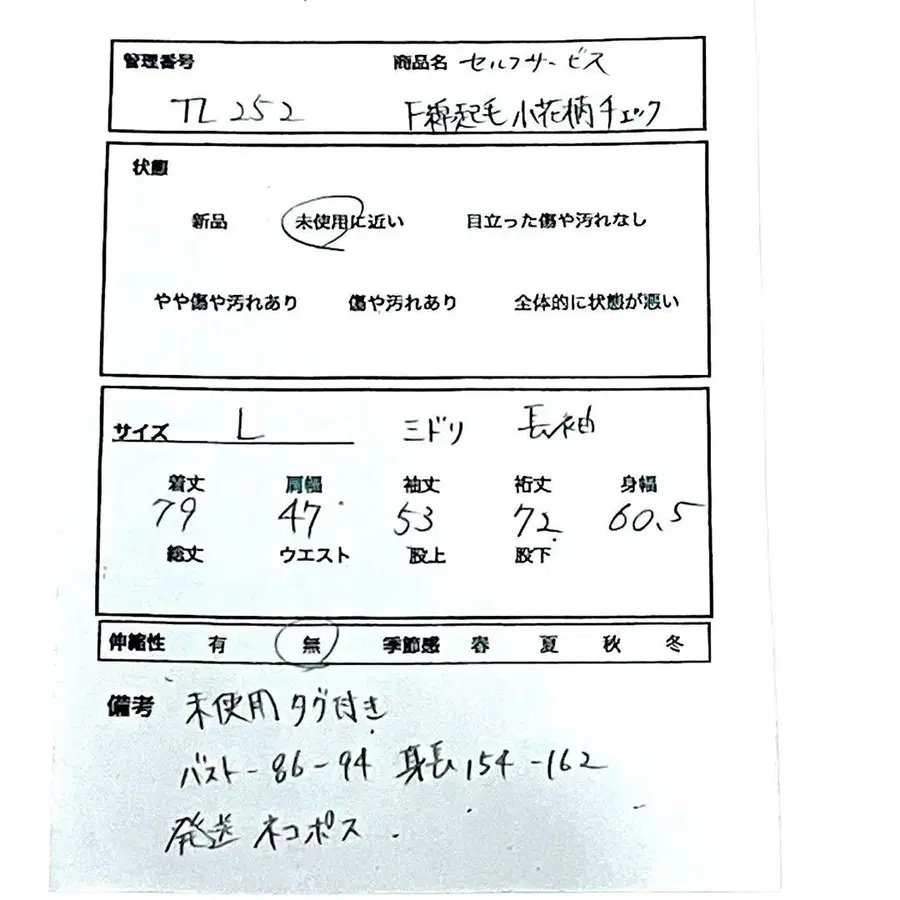 管理番号 商品名 セルフサービス
TL 252 F綿起毛小花柄チェック
状態
新品 未使用に近い 目立った傷や汚れなし
やや傷や汚れあり 傷や汚れあり 全体的に状態が悪い
サイズ L ミドリ 長袖
着丈 肩幅 袖丈 裄丈 身幅
79 47 53 72 60.5
総丈 ウエスト 股上 股下
伸縮性 有 無 季節感 春 夏 秋 冬
備考 未使用タグ付き
バスト-86-94 身長154-162
発送 ネコポス.